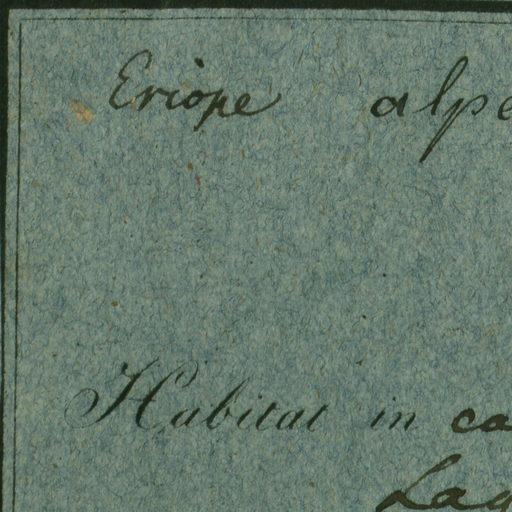 Eriope alpe
Habitat in ca
Lag